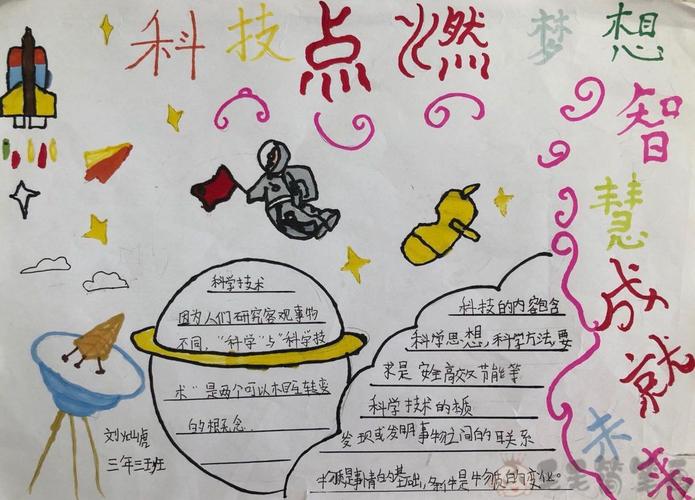 科技点燃梦想
智慧成就未来
科学技术
因为人们研究客观事物
不同，“科学”与“科学技
术”是两个可以相互转变
的概念
科技的内容包含
科学思想，科学方法，要
求是安全高效又节能等
科学技术的本质
发现或发明事物之间的联系
物质是事情的基础，条件是物质的变化。
刘灿虎
三年三班